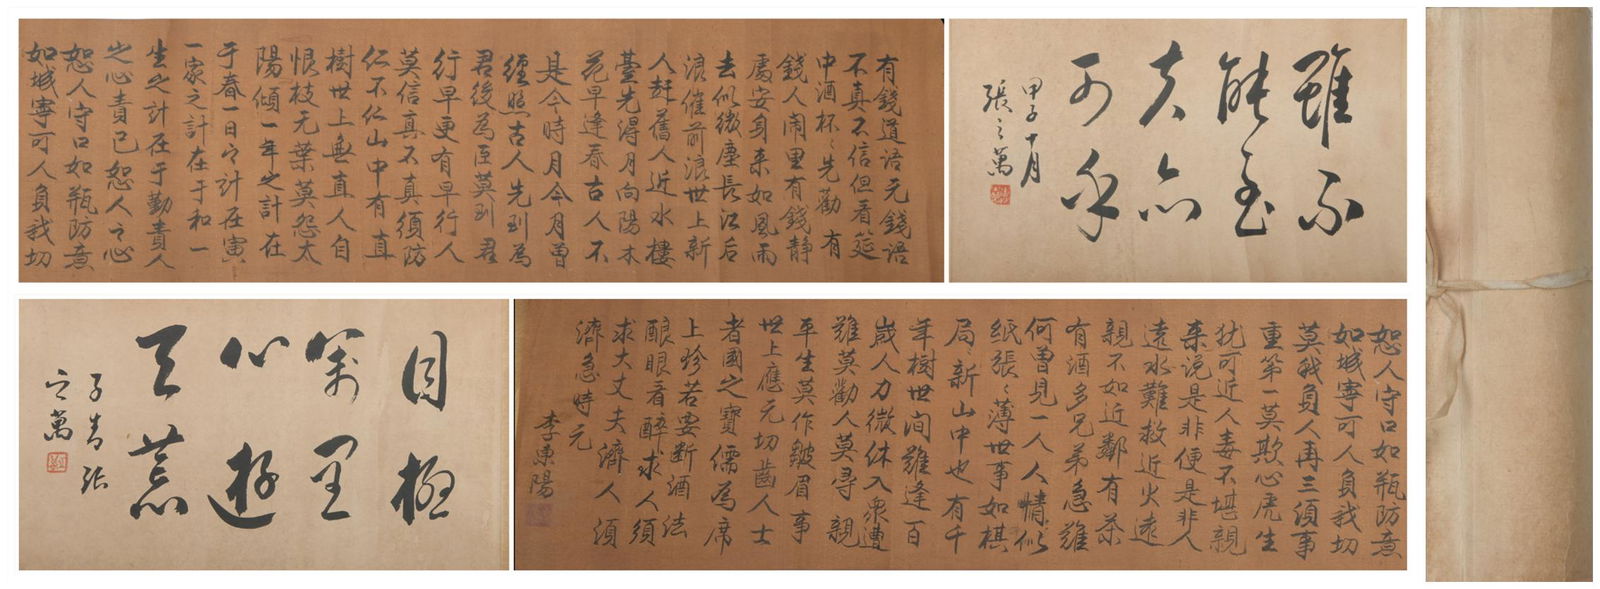 雖不
能至
夫亦
可乎
甲子十月
張之萬
有錢道語元錢語
不真不信但看筵
中酒杯〻先勸有
錢人鬧里有錢静
處安身来如風雨
去似微塵長江后
浪催前浪世上新
人赶舊人近水樓
臺先得月向陽木
花早逢春古人不
是今時月今月曽
經照古人先到為
君後為臣莫到君
行早更有早行人
莫信真不真須防
仁不仁山中有直
樹世上無直人自
恨枝无葉莫怨太
陽傾一年之計在
于春一日之計在寅
一家之計在于和一
生之計在于勤責人
之心責己恕人之心
恕人守口如瓶防意
如城寧可人負我切
恕人守口如瓶防意
如城寧可人負我切
莫我負人再三須事
重第一莫欺心虎生
犹可近人毒不堪親
来说是非便是非人
遠水難救近火遠
親不如近鄰有茶
有酒多兄弟急難
何曾見一人人情似
纸張〻薄世事如棋
局〻新山中也有千
年樹世间難逢百
歲人力微休入衆遭
難莫勸人莫尋親
平生莫作皺眉事
世上應元切齒人士
者國之寶儒為席
上珍若要斷酒法
醸眼看醉求人須
求大丈夫濟人須
濟急時元
李東陽
目極
萬里
心遊
大荒
子青張
之萬